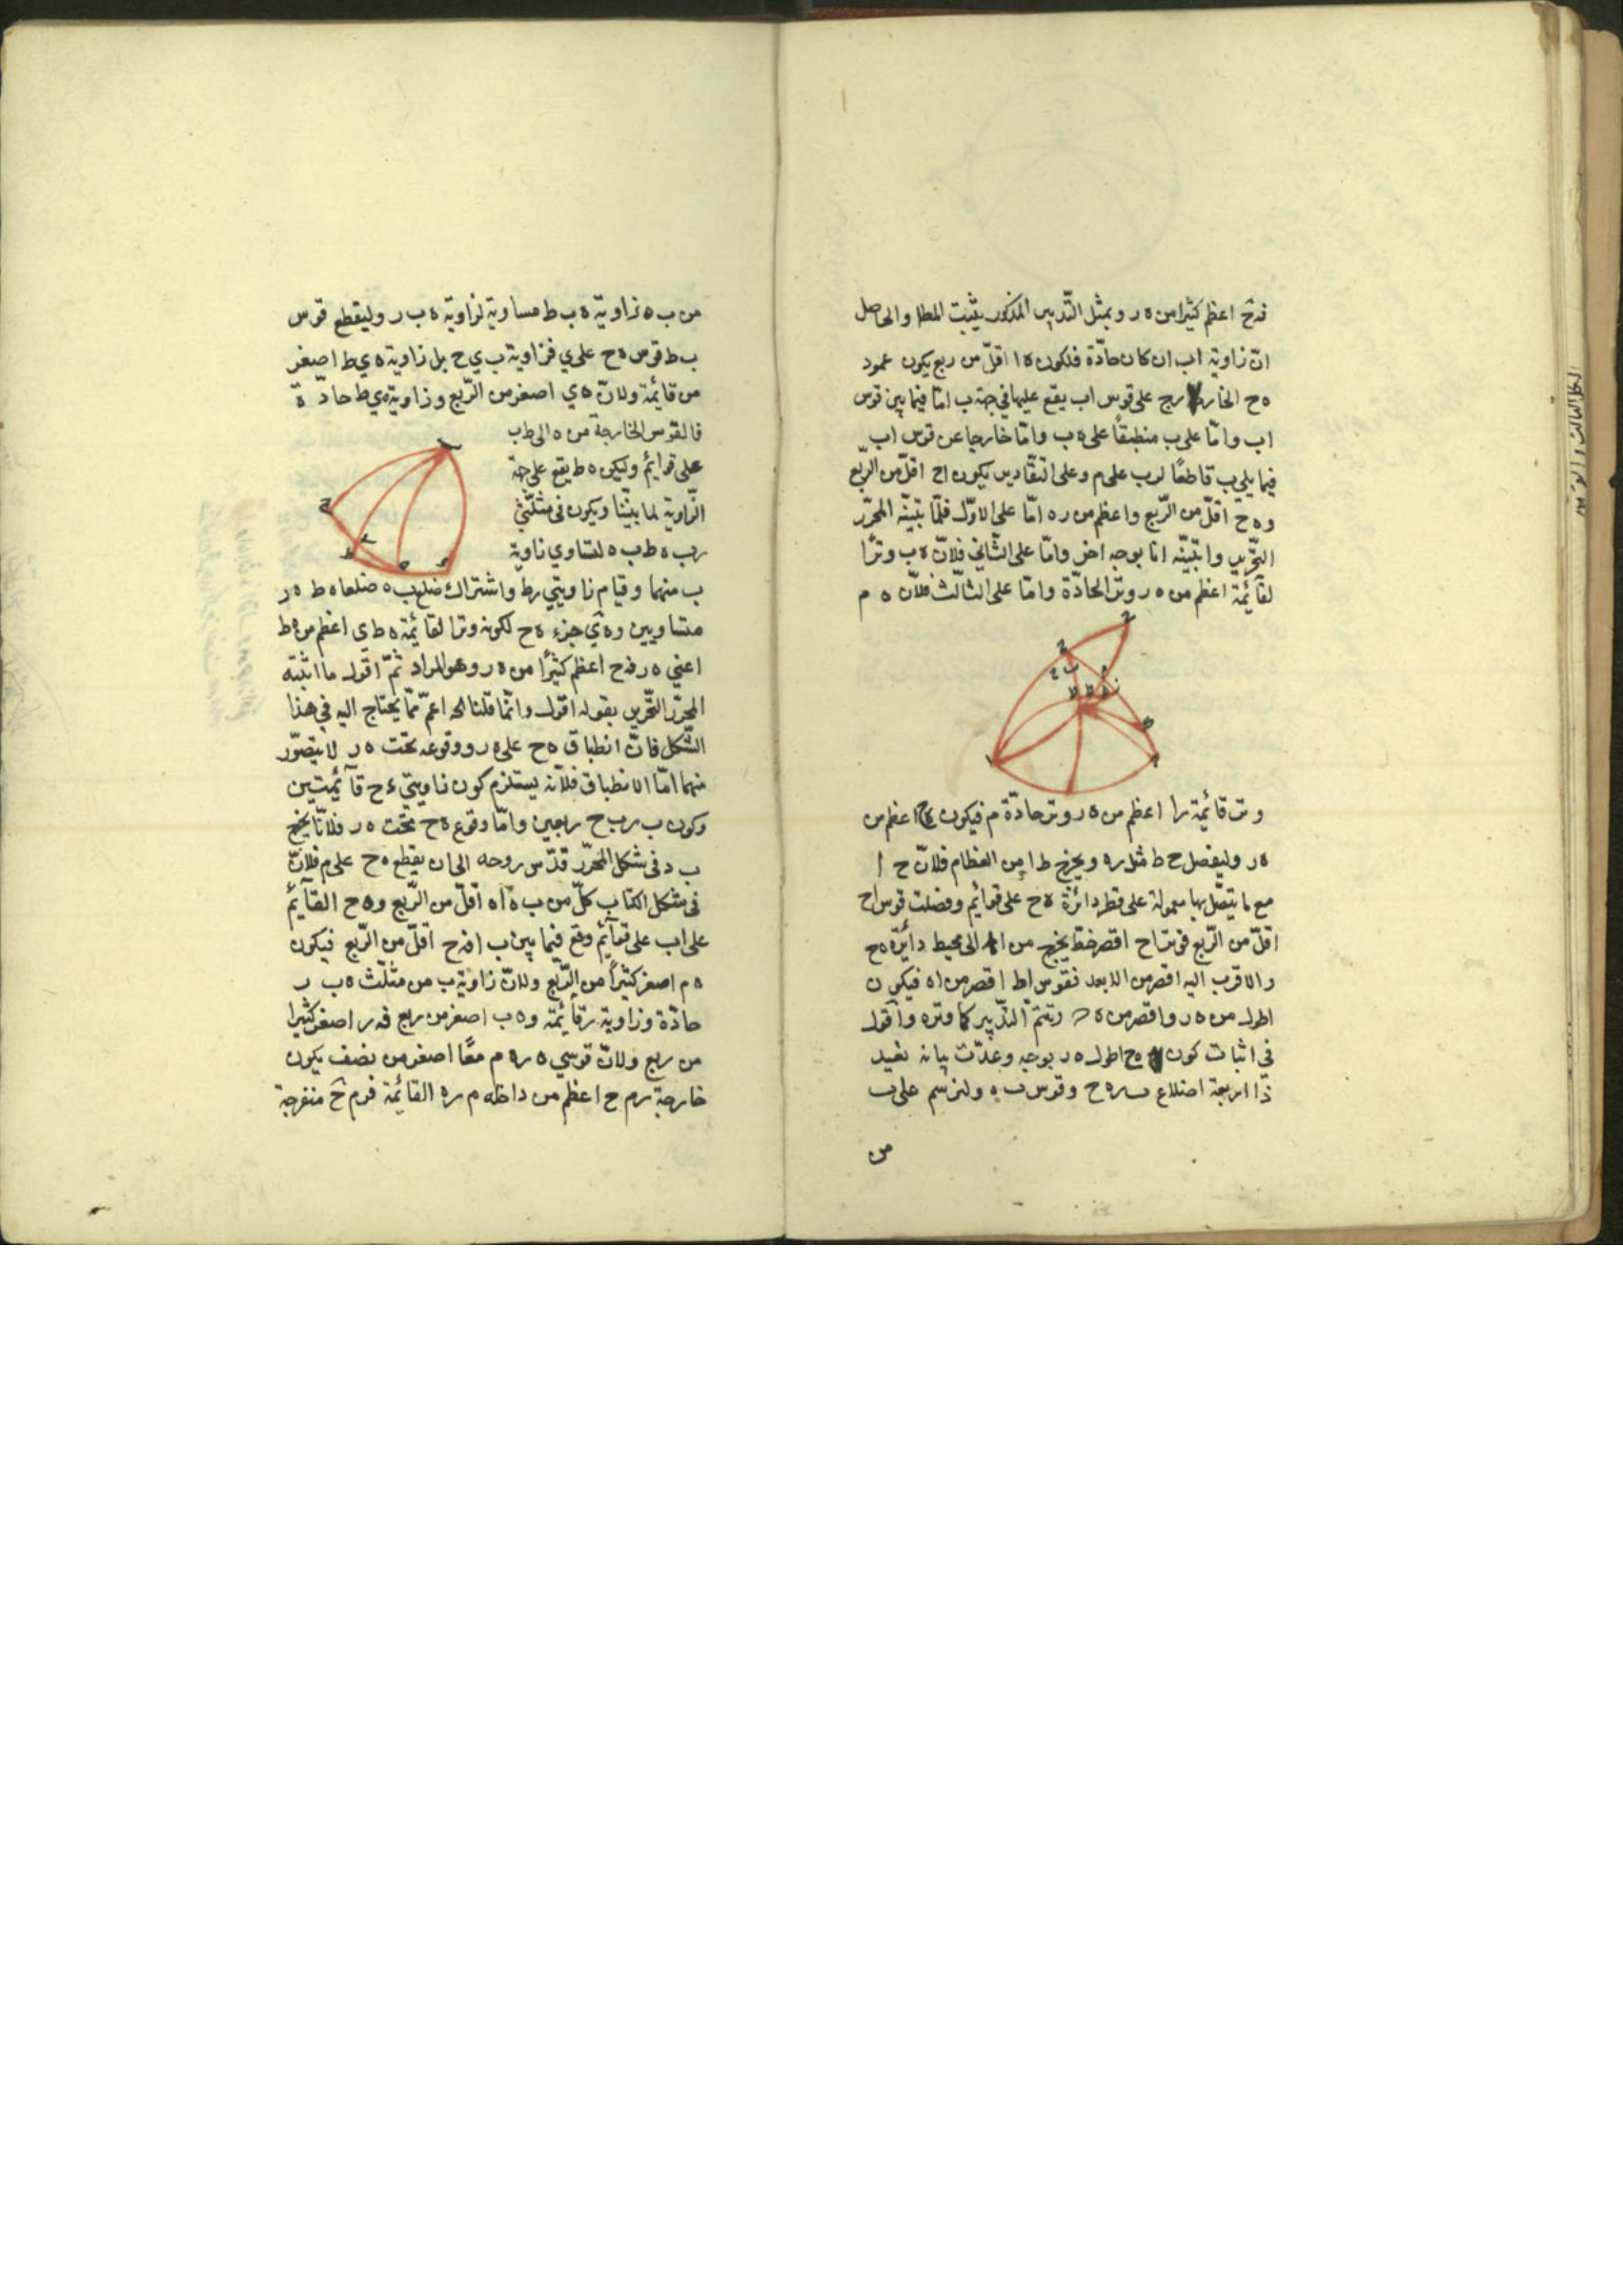 فهح اعظم كثيرا من ه ر وبمثل التدبير المذكور يثبت المط والحاصل
ان زاوية اب ان كان حادّة فلكون ه ا اقلّ من ربع يكون عمود
ه ح الخارج على قوس اب يقع عليها في جهة ب امّا فيما بين قوس
اب وامّا على ب منطبقًا على ه ب وامّا خارجا عن قوس اب
فيما يلي ب قاطعًا لرب على م وعلى التقادير يكون اح اقلّ من الرّبع
و ه ح اقلّ من الرّبع واعظم من ر ه امّا على الاوّل فلما بيّنه المحرّر
التحرير وابيّنه انا بوجه اخر وامّا على الثّاني فلانّ ه ب وترًا
لقائمة اعظم من ه ر وتر الحادّة وامّا على الثالث فلانّ ه م
وتر قائمة را اعظم من ه ر وتر حادّة م فيكون ه ح اعظم من
ه ر وليفصل ح ط مثل ر ه ويخرج ط ا من العظام فلانّ ح ا
مع ما يتّصل بها معمولة على قطر دائرة ه ح على قوائم وفضلت قوس اح
اقلّ من الرّبع فوتر اح اقصر خط يخرج من ا الى محيط دائرة ه ح
والاقرب اليه اقصر من الابعد فقوس اط اقصر من اه فيكون
اطول من ه ر واقصر من ه ويتمّ التدبير كما وتره واقول
في اثبات كون ه ح اطول ه ر بوجه وعدت بيانه نعيد
ذا اربعة اضلاع ب ر ه ح وقوس ب ه ولنرسم على ب
من
من ب ه زاوية ه ب ط مساوية لزاوية ه ب ر وليقطع قوس
ب ط قوس ه ح على ي فزاوية ب ي ح بل زاوية ه ي ط اصغر
من قائمة ولانّ ه ي اصغر من الرّبع وزاوية ه ي ط حادّة
فالقوس الخارجة من ه الى ط ب
على قوائم وليكن ه ط يقع على جهة
الزاوية لما بيّنا ويكون في مثلّثي
ر ب ه ط ب ه لتساوي زاوية
ب منهما وقيام زاويتي ر ط واشتراك ضلع ب ه ضلعا ه ط ه ر
متساويين و ه ي جزء ه ح لكونه وترا لقائمة ه ط ي اعظم من ه ط
اعني ه ر فه ح اعظم كثيرًا من ه ر وهو المراد ثمّ اقول ما اثبته
المحرّر التحرير بقوله اقول وانّما قلنا الخ اعمّ ممّا يحتاج اليه في هذا
الشّكل فانّ انطباق ه ح على ه ر ووقوعه تحت ه ر لا يتصوّر
منهما امّا الانطباق فلانّه يستلزم كون زاويتي ر ح قائمتين
وكون ب ر ب ح ربعين وامّا وقوع ه ح تحت ه ر فلانّا نخرج
ب د في شكل المحرّر قدّس روحه الى ان يقطع ه ح على م فلانّ
في شكل الكتاب كلّ من ب ه ا ه اقلّ من الرّبع و ه ح القائم
على اب على قوائم وقع فيما بين ب ا فه ح اقلّ من الرّبع فيكون
ه م اصغر كثيرًا من الرّبع ولانّ زاوية ب من مثلّث ه ب ر
حادّة وزاوية ر قائمة و ه ب اصغر من ربع فه ر اصغر كثيرا
من ربع ولانّ قوسي ه ر ه م معًا اصغر من نصف يكون
خارجة ر م ح اعظم من داخله م ر ه القائمة فر م ح منفرجة